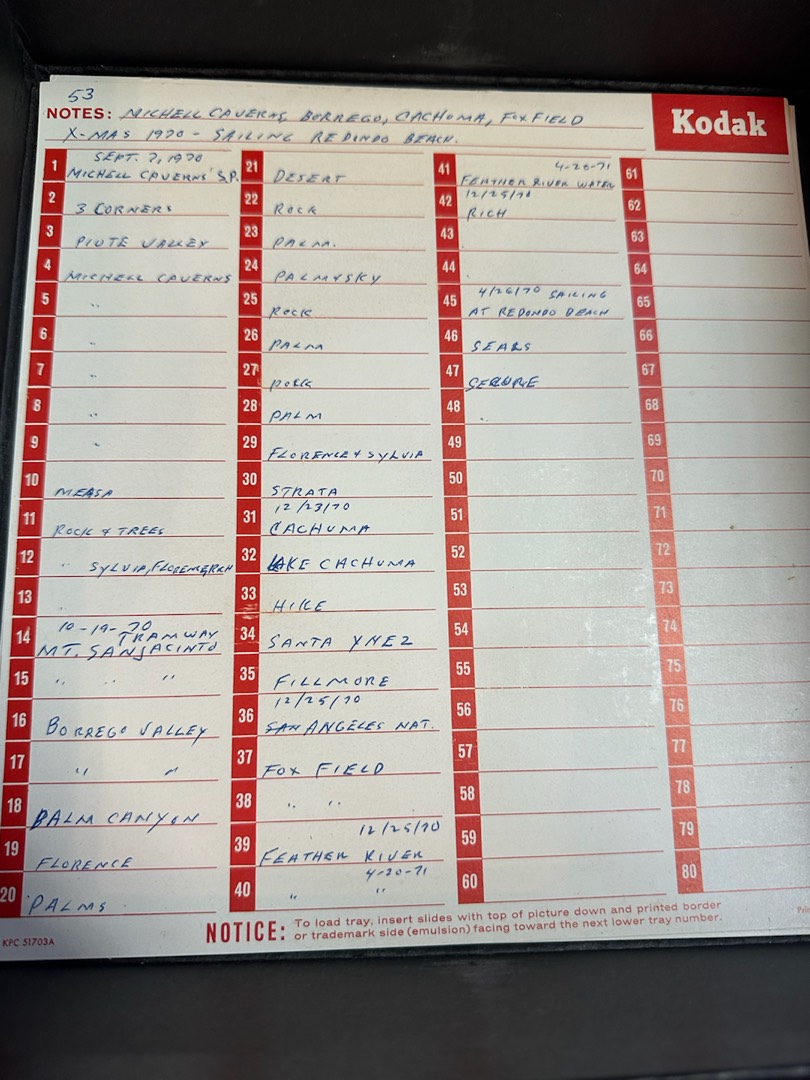 53
NOTES: MICHELL CAVERNS, BORREGO, CACHOMA, FOX FIELD
X-MAS 1970 - SAILING REDONDO BEACH.
Kodak
SEPT. 7, 1970
1 MICHELL CAVERNS S.P.
2 3 CORNERS
3 PIUTE VALLEY
4 MICHELL CAVERNS
5 "
6 "
7 "
8 "
9 "
10 MEASA
11 ROCK & TREES
12 " SYLVIA, FLORENCE, RICH
13 "
10-19-70
14 TRAMWAY
MT. SAN JACINTO
15 " " "
16 BORREGO VALLEY
17 " "
18 PALM CANYON
19 FLORENCE
20 PALMS
21 DESERT
22 ROCK
23 PALM.
24 PALM & SKY
25 ROCK
26 PALM
27 ROCK
28 PALM
29 FLORENCE & SYLVIA
30 STRATA
12/23/70
31 CACHUMA
32 LAKE CACHUMA
33 HIKE
34 SANTA YNEZ
35 FILLMORE
12/25/70
36 SAN ANGELES NAT.
37 FOX FIELD
38 " "
12/25/70
39 FEATHER RIVER
4-20-71
40 " "
4-20-71
41 FEATHER RIVER WATER
12/25/70
42 RICH
43
44
4/26/70 SAILING
45 AT REDONDO BEACH
46 SEALS
47
48 "
49
50
51
52
53
54
55
56
57
58
59
60
61
62
63
64
65
66
67
68
69
70
71
72
73
74
75
76
77
78
79
80
KPC 51703A
NOTICE: To load tray, insert slides with top of picture down and printed border
or trademark side (emulsion) facing toward the next lower tray number.